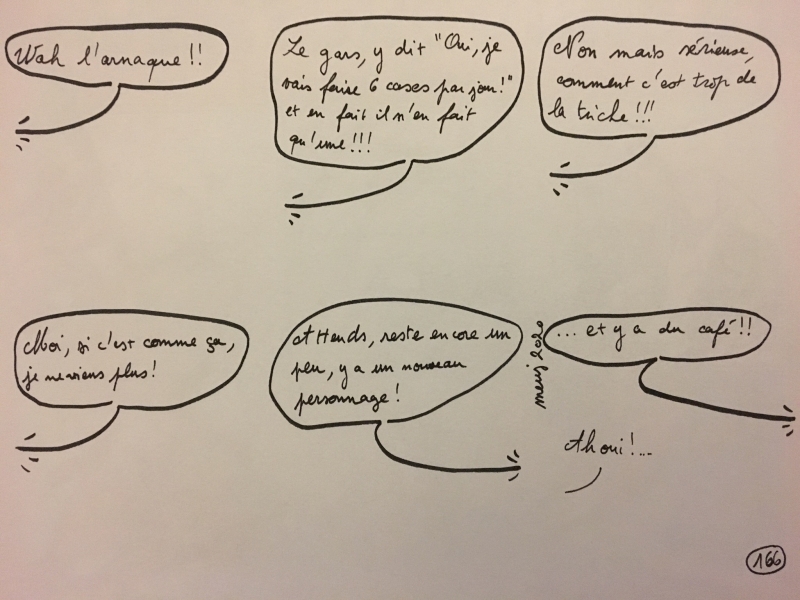 Wah l'arnaque !!
Le gars, y dit "Oui, je
vais faire 6 cases par jour!"
et en fait il n'en fait
qu'une !!!
Non mais sérieuse,
comment c'est trop de
la triche !!!
Moi, si c'est comme ça,
je ne viens plus !
Attends, reste encore un
peu, y a un nouveau
personnage !
... et y a du café !!
Ah oui !...
2020
166